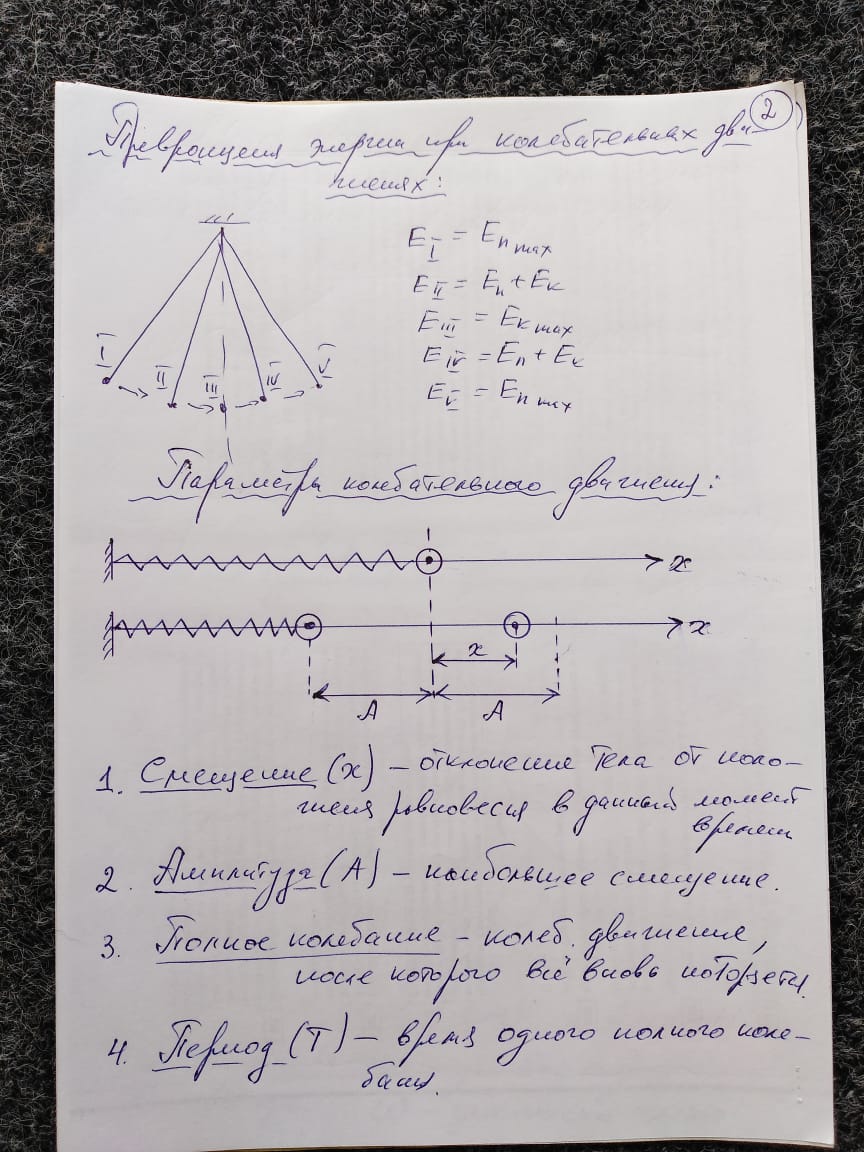 2
Превращения энергии при колебательных дви-
жениях:
E_I = E_п max
E_II = E_п + E_к
E_III = E_к max
E_IV = E_п + E_к
E_V = E_п max
I II III IV V
Параметры колебательного движения:
x
x
x
A A
1. Смещение (x) – отклонение тела от поло-
жения равновесия в данный момент
времени
2. Амплитуда (A) – наибольшее смещение.
3. Полное колебание – колеб. движение,
после которого всё вновь повторяется.
4. Период (T) – время одного полного коле-
бания.